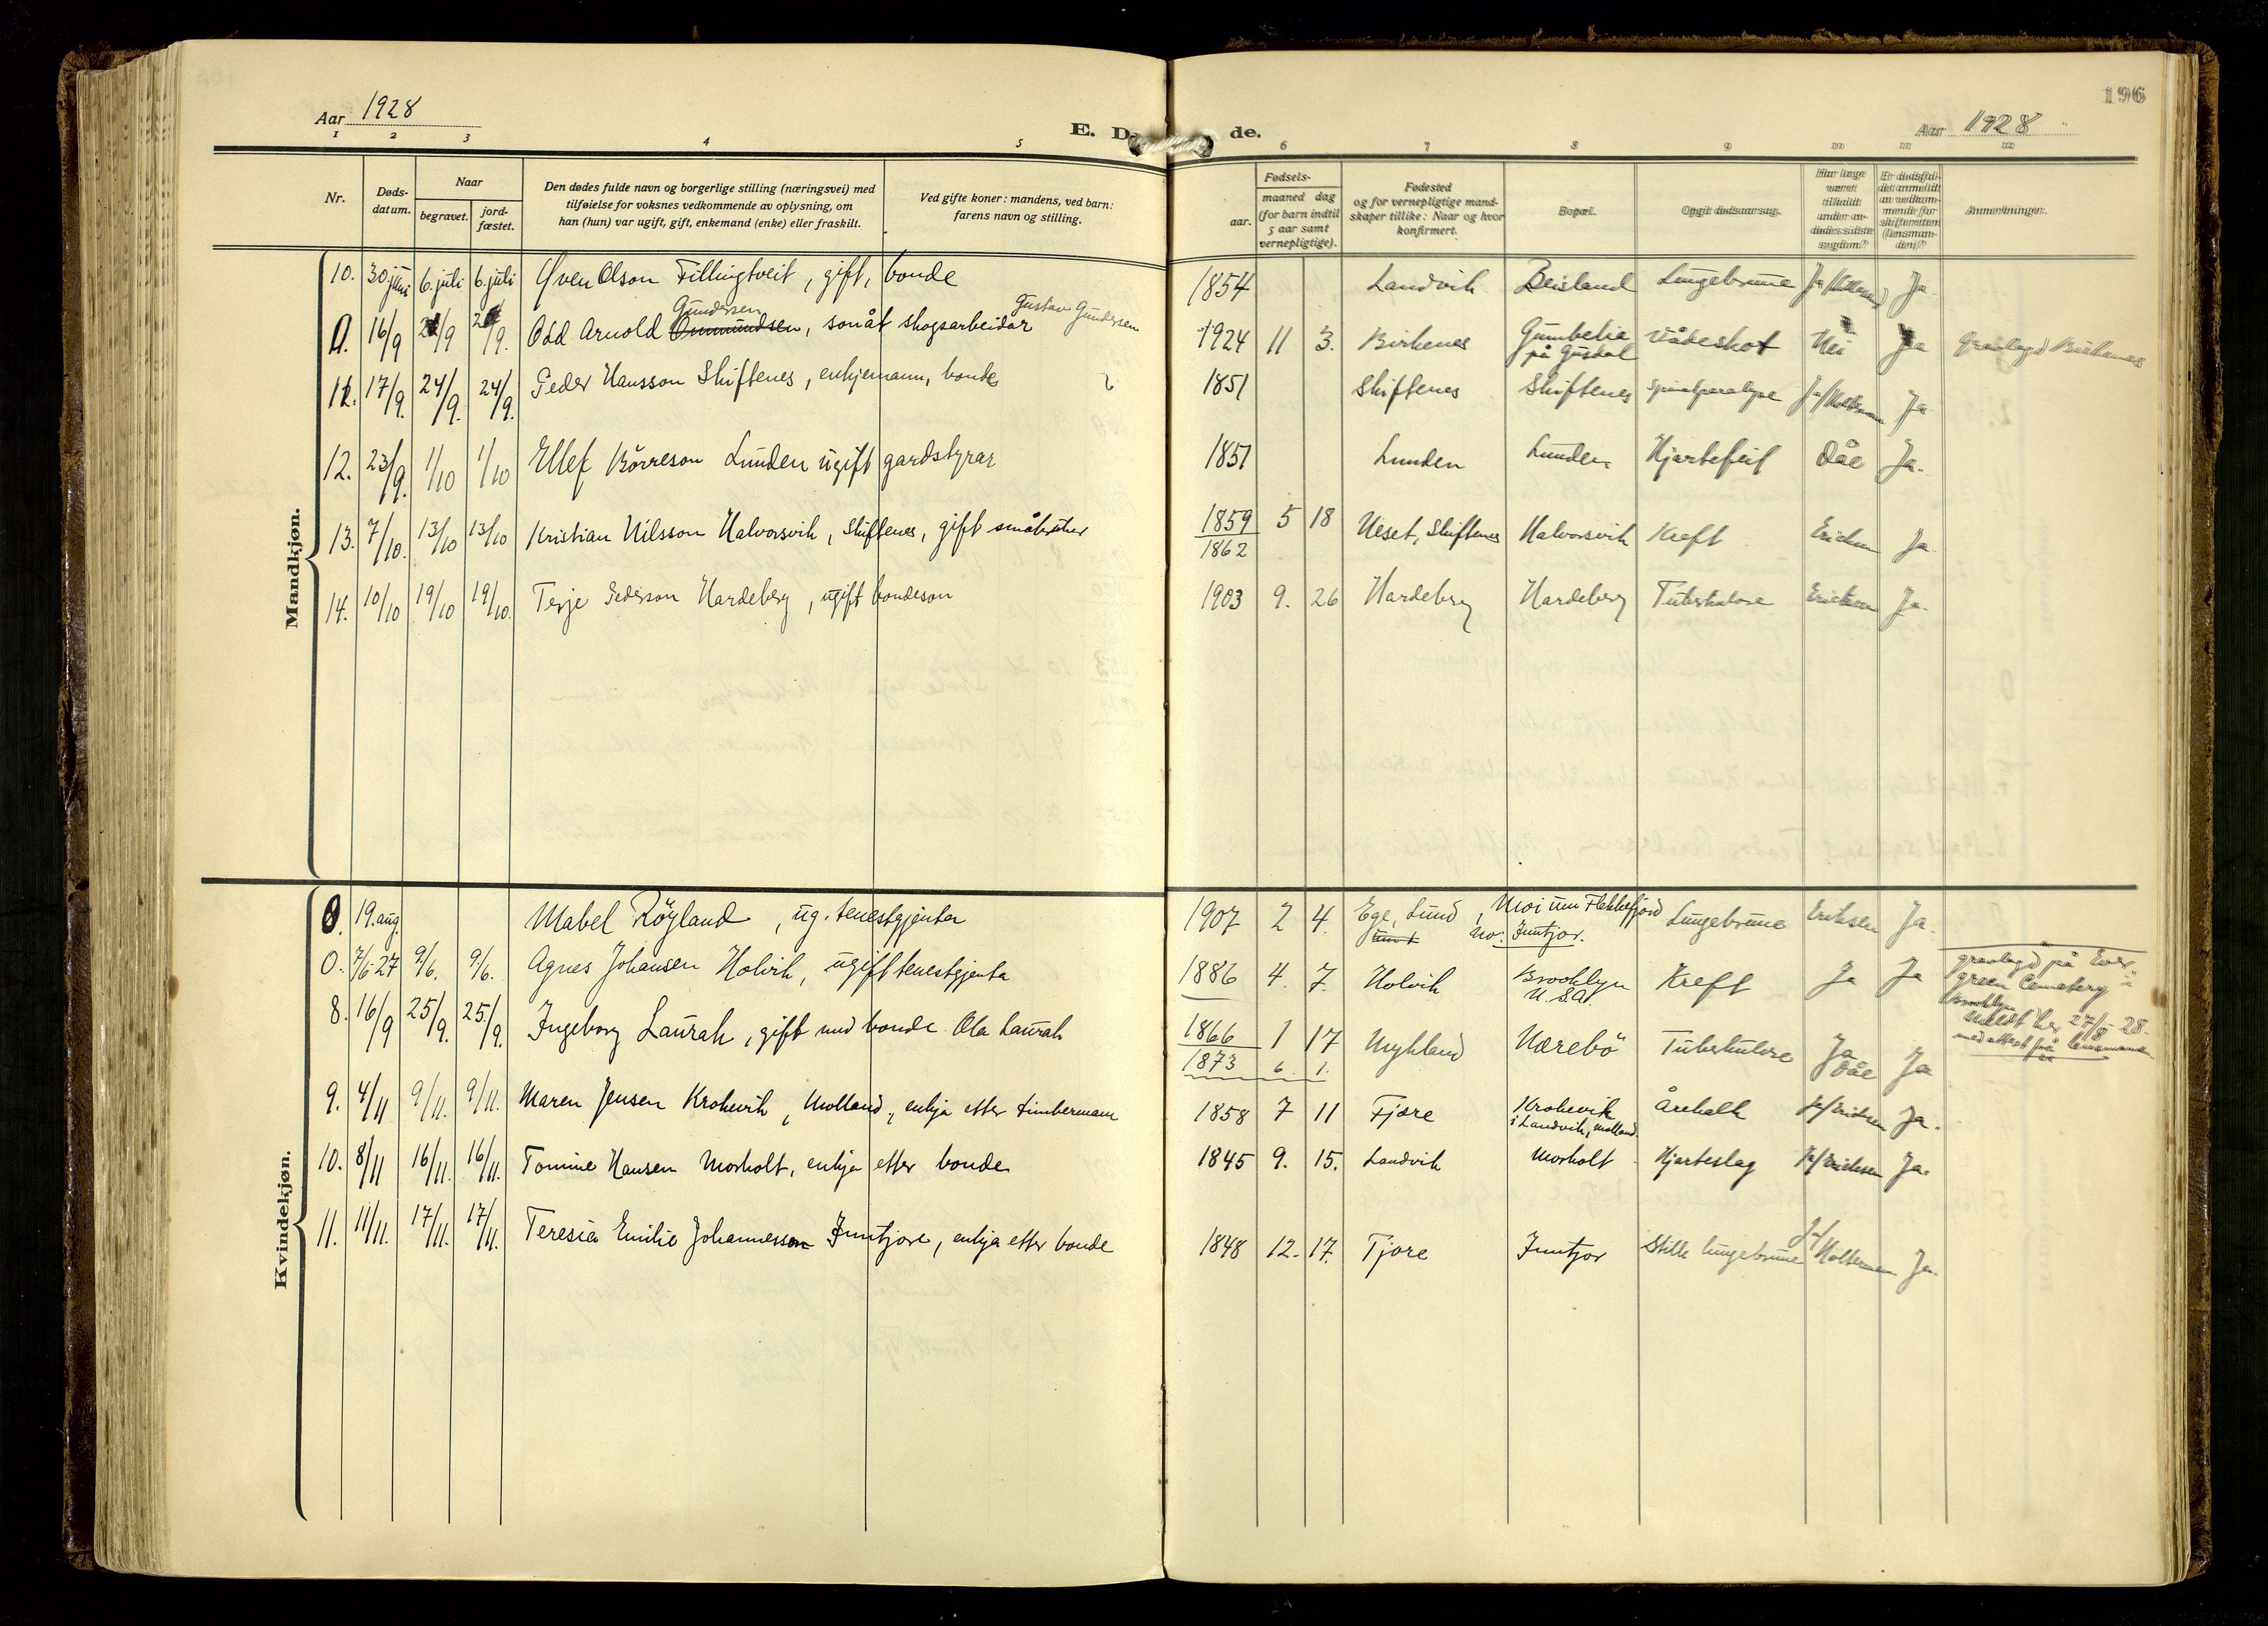 Aar 1928
E. D de.
196
Aar 1928
1 2 3 4 5 6 7 8 9 10 11 12
Nr.
Døds-
datum.
Naar
begravet.
jord-
fæstet.
Den dødes fulde navn og borgerlige stilling (næringsvei) med
tilføielse for voksnes vedkommende av oplysning, om
han (hun) var ugift, gift, enkemand (enke) eller fraskilt.
Ved gifte koner: mandens, ved barn:
farens navn og stilling.
Fødsels-
aar.
maaned dag
(for barn indtil
5 aar samt
vernepligtige).
Fødested
og for vernepligtige mand-
skaper tillike: Naar og hvor
konfirmert.
Bopæl.
Opgit dødsaarsag.
Har læge
været
tilkaldt
under av-
dødes sidste
sygdom?
Er dødsfal-
det anmeldt
av vedkom-
mende for
skifteretten
(lensman-
den)?
Anmerkninger.
Mandkjøn.
10. 30 juni 6. juli 6. juli Sven Olson Fillingtveit, gift, bonde 1854 Landvik Beisland Lungebrune Ja Ja
Gundersen Gustav Gundersen
0. 16/9 /9 /9. Odd Arnold Ommundsen, son åt skogsarbeidar 1924 11 3. Birkenes Gumbelie Vådeskot Nei Ja Gravlagd Birkenes
på Gusdal
11. 17/9. 24/9. 24/9. Peder Hansson Skiftenes, enkjemann, bonde 1851 Skiftenes Skiftenes Spinalparalyse Ja/Holtsman Ja
12. 23/9. 1/10 1/10 Ellef Börreson Lunden ugift gardstyrar 1851 Lunden Lunden Hjartefeil Dåe Ja.
13. 7/10. 13/10 13/10 Kristian Nilsson Halvorsvik, Skiftenes, gift småbruker 1859 5 18 Neset, Skiftenes Halvorsvik Kreft Ericksen Ja
1862
14. 10/10 19/10 19/10. Terje Pederson Hardeberg, ugift bondeson 1903 9. 26 Hardeberg Hardeberg Tuberkulose Ericksen Ja.
Kvindekjøn.
0. 19. aug. Mabel Röyland, ug. tenestgjenta 1907 2 4. Ege, Lund, Moi um Flekkefjord Lungebrune Eriksen Ja.
No: Inntjor.
0. 7/6-27 9/6. 9/6. Agnes Johansen Holvik, ugift tenestgjenta 1886 4. 7. Holvik Brooklyn Kreft Ja Ja gravlagd på Ever
U.S.A. green Cemetery
Brooklyn
Meldt her 27/8-28.
med attest frå lensmannen
8. 16/9 25/9. 25./9. Ingeborg Laurak, gift med bonde Ola Laurak 1866 1 17 Mykland Nærebö Tuberkulose Ja Ja
1873 6. 1. Dåe
9. 4/11 9/11. 9/11. Maren Jensen Krokevik, Molland, enkja etter timbermann 1858 7 11 Fjære Krokevik Årekalk Ja/Ericksen Ja.
i Landvik, Molland.
10. 8/11 16/11. 16/11. Tomine Hansen Morholt, enkja etter bonde 1845 9. 15. Landvik Morholt Hjarteslag Ja/Ericksen Ja.
11. 11/11. 17/11. 17/11. Teresia Emilie Johannesson Inntjore, enkja etter bonde 1848 12. 17. Tjore Inntjor Stille lungebrune Ja/Holtsman Ja.